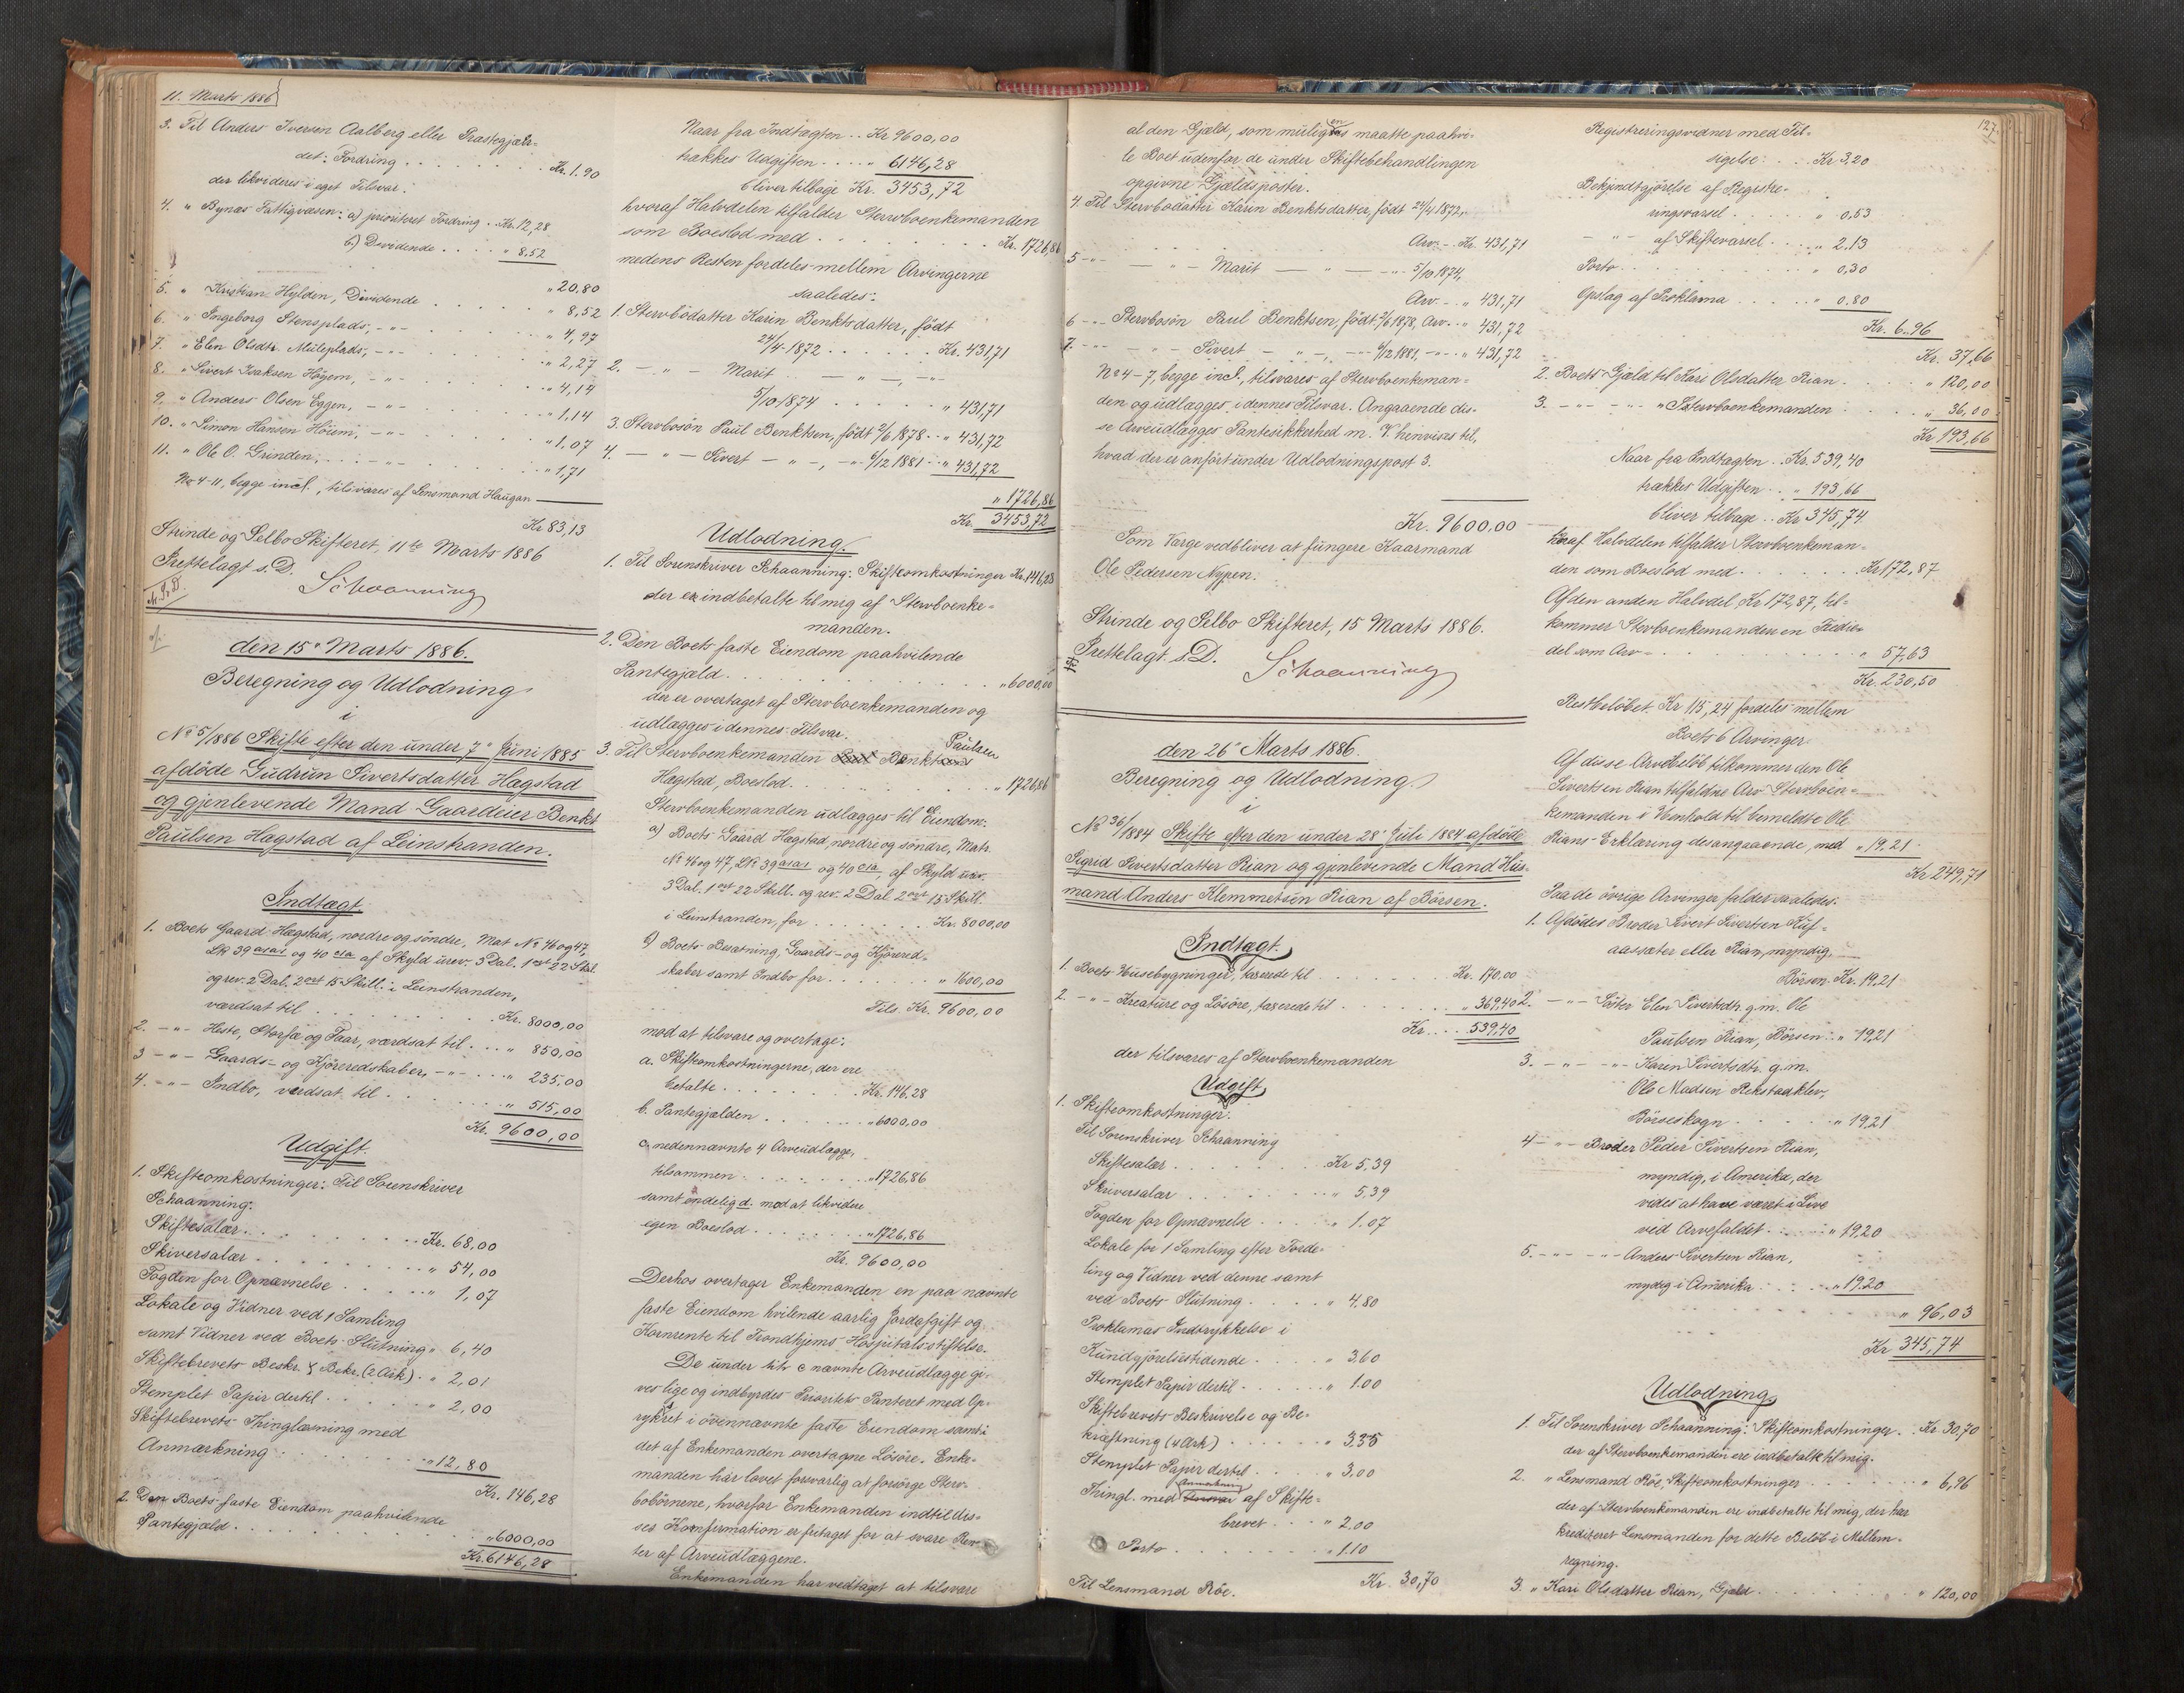 11. Marts 1886
3. Til Anders Iversen Aalberg eller Præstegjæl-
det: Fordring . . . . . . . Kr. 1.90
der likvideres i eget Tilsvar.
4. " Bynæs Fattigvæsen: a) prioriteret Fordring . . Kr. 12,28
b.) Dividende . . . . " 8,52
" 20,80
5. " Kristian Hylden, Dividende . . . . " 8,52
6. " Ingeborg Stensplads, -"- . . . . " 4,97
7. " Elen Olsdtr. Müleplads, -"- . . . . " 2,27
8. " Sivert Isaksen Höyem, -"- . . . . " 4,14
9. " Anders Olsen Eggen, -"- . . . . " 1.14
10. " Simon Hansen Höiem, -"- . . . . " 1,07
11. " Ole O. Grinden, . . . -"- . . . . " 1,71
No 4-11, begge incl., tilsvares af Lensmand Haugan
Kr 83,13
Strinde og Selbo Skifteret, 11te Marts 1886
Prettelagt s. D.
Schaanning
den 15de Marts 1886.
Beregning og Udlodning
i
No 5/1886 Skifte efter den under 7de Juni 1885
afdöde Gudrun Sivertsdatter Hagstad
og gjenlevende Mand Gaardeier Benkt
Paulsen Hagstad af Leinstranden.
Indtægt.
1. Boets Gaard Hægstad, nordre og söndre, Mat No 46 og 47,
LN 39 asas og 40 asa af Skyld urev. 3 Dal. 1 ort 22 Skil.
og rev. 2 Dal. 2 ort 15 Skill. i Leinstranden,
værdsat til . . . . . . . . Kr. 8000,00
2. -"- Heste, Storfæ og Faar, værdsat til . . . " 850,00
3 -"- Gaards- og Kjöreredskaber, -"- . . . " 235,00
4. -"- Indbo, værdsat til . . . . . . . " 515,00
Kr. 9600,00
Udgift.
1. Skifteomkostninger: Til Sorenskriver
Schaanning:
Skiftesalær . . . . . . . Kr. 68,00
Skriversalær . . . . . . . " 54,00
Fogden for Opnævnelse . . . . . " 1,07
Lokale og Vidner ved 1 Samling
samt Vidner ved Boets Slutning " 6,40
Skiftebrevets Beskr. & Bekr. (2 Ark) . " 2,01
Stemplet Papir dertil . . . . . " 2,00
Skiftebrevets Thinglæsning med
Anmærkning . . . . . . . " 12,80
Kr. 146,28
2. Den Boets faste Eiendom paahvilende
Pantegjæld . . . . . . . . . " 6000,00
Kr. 6146,28
Naar fra Indtægten . . Kr 9600,00
trækkes Udgiften . . . . " 6146,28
bliver tilbage Kr. 3453,72
hvoraf Halvdelen tilfalder Stervboenkemanden
som Boeslod med . . . . . . . . Kr. 1726,86
medens Resten fordeles mellem Arvingerne
saaledes:
1. Stervbödatter Karin Benktsdatter, födt
24/4 1872 . . . . . . Kr. 431,71
2. -"- Marit -"-, -"-
5/10 1874 . . . . . . " 431,71
3. Stervbosön Paul Benktsen, födt 2/6 1878 . . " 431,72
4. -"- Sivert -"-, -"- 6/12 1881 . . " 431,72
" 1726,86
Kr. 3453,72
Udlodning.
1. Til Sorenskriver Schaanning: Skifteomkostninger Kr. 146,28
der er indbetalte til mig af Stervboenke-
manden.
2. Den Boets faste Eiendom paahvilende
Pantegjæld . . . . . . . . . . " 6000,00
der er overtaget af Stervboenkemanden og
udlægges i dennes Tilsvar.
3. Til Stervboenkemanden Benkt Paulsen
Hægstad, Boeslod . . . . . . . . " 1726,86
Stervboenkemanden udlægges til Eiendom:
a) Boets Gaard Hægstad, nordre og söndre, Matr.
No 46 og 47, LN 39 asas og 40 asa, af Skyld urev.
3 Dal. 1 ort 22 Skill. og rev. 2 Dal 2 ort 15 Skill.
i Leinstranden, for . . . . . . Kr. 8000,00
b) Boets Besætning, Gaards- og Kjörered-
skaber samt Indbo for . . . . . . " 1600,00
Tils. Kr. 9600,00
mod at tilsvare og overtage:
a. Skifteomkostningerne, der ere
betalte . . . . . . . . Kr. 146.28
b. Pantegjælden . . . . . . " 6000,00
c, nedennævnte 4 Arveudlægge,
tilsammen . . . . . . . " 1726,86
samt endelig d. mod at likvidere
egen Boeslod . . . . . . . " 1726,86
Kr. 9600,00
Derhos overtager Enkemanden en paa nævnte
faste Eiendom hvilende aarlig Jordafgift og
Kornrente til Trondhjems Hospitalsstiftelse.
De under litr c nævnte Arveudlægge gi-
ves lige og indbyrdes Prioritets Panteret med Op-
rykret i övennævnte faste Eiendom samt i
det af Enkemanden overtagne Lösöre. Enke-
manden har lovet forsvarlig at forsörge Sterv-
bobörnene, hvorfor Enkemanden indtil dis-
ses Konfirmation er fritaget for at svare Ren-
ter af Arveudlæggene.
Enkemanden har vedtaget at tilsvare
127.
al den Gjæld, som muligens maatte paahvi-
le Boet udenfor de under Skiftebehandlingen
opgivne Gjældsposter.
4. Til Stervbodatter Karin Benktsdatter, födt 24/4 1872,
Arv . - Kr. 431,71
5 -"- -"- Marit -"- -"- 5/10 1874,
Arv . - " 431,71
6 -"- Stervbosön Paul Benktsen, födt 2/6 1878, Arv . . " 431,72
7. -"- -"- Sivert -"-, -"- 6/12 1881, -"- " 431,72
No 4-7, begge incl., tilsvares af Stervboenkeman-
den og udlægges i dennes Tilsvar. Angaaende dis-
se Arveudlægges Pantesikkerhed m. V. henvises til,
hvad der er anfört under Udlodningspost 3.
Kr. 9600,00
Som Værge vedbliver at fungere Kaarmand
Ole Pedersen Nypen.
Strinde og Selbo Skifteret, 15 Marts 1886.
Prettelagt s. D.
Schaanning
den 26de Marts 1886.
Beregning og Udlodning
i
No 36/1884 Skifte efter den under 28de Juli 1884 afdöde
Sigrid Sivertsdatter Rian og gjenlevende Mand Hus-
mand Anders Klemmetsen Rian af Börsen.
Indtægt.
1. Boets Husebygninger, taxerede til . . . . . . Kr. 170,00
2. -"- Kreature og Lösöre, taxerede til . . . . . " 369,40
Kr. . . . 539,40
der tilsvares af Stervboenkemanden
Udgift
1. Skifteomkostninger:
Til Sorenskriver Schaanning
Skiftesalær . . . . . . . Kr 5,39
Skriversalær . . . . . . . " 5,39
Fogden for Opnævnelse . . . . " 1.07
Lokale for 1 Samling efter Forde-
ling og Vidner ved denne samt
ved Boets Slutning . . . . " 4.80
Proklamas Indrykkelse i
Kundgjörelsestidende . . . . " 3,60
Stemplet Papir dertil . . . . " 1.00
Skiftebrevets Beskrivelse og Be-
kræftning (4 Ark) . . . . . . " 3,35
Stemplet Papir dertil . . . . " 3,00
Thingl. med Anmærkning af Skifte-
brevet . . . " 2.00
Porto . . . . . . . " 1.10
Kr. 30,70
Til Lensmand Röe.
Registreringsvidner med Til-
sigelse: . . . Kr 3,20
Bekjendtgjörelse af Registre-
ringsvarsel . . . . . " 0,53
-"- af Skiftevarsel . . . " 2.13
Porto . . . . . . . " 0,30
Opslag af Proklama . . . . " 0.80
Kr. 6..96
Kr. 37,66
2. Boets Gjæld til Kari Olsdatter Rian . . . . " 120,00
3. -"- -"- " Stervboenkemanden . . . . " 36,00
Kr 193,66
Naar fra Indtægten . . Kr. 539,40
trækkes Udgiften . . " 193,66
bliver tilbage . . Kr 345,74.
hvoraf Halvdelen tilfalder Stervboenkeman-
den som Boeslod med . . . . . . Kr 172,87
Af den anden Halvdel, Kr 172,87, til-
kommer Stervboenkemanden en Tredie-
del som Arv . . . . . . . . " 57,63
Kr. 230,50
Restbelöbet Kr 115,24 fordeles mellem
Boets 6 Arvinger.
Af disse Arvebelöb tilkommer den Ole
Sivertsen Rian tilfaldne Arv Stervboen-
kemanden i Henhold til bemeldte Ole
Rians Erklæring desangaaende, med " 19,21
Kr 249,71
Paa de övrige Arvinger falder saaledes:
1. Afdödes Broder Sivert Sivertsen Huf-
aassæter eller Rian, myndig,
Börsen Kr. 19,21
2. -"- Söster Elen Sivertsdtr. g. m. Ole
Paulsen Rian, Börsen: " 19,21
3. -"- -"- Karen Sivertsdtr. g. m.
Ole Madsen Rekstadklev,
Börseskogn . . . . . " 19,21
4 -"- Broder Peder Sivertsen Rian,
myndig, i Amerika, der
vides at have været i Live
ved Arvefaldet . . . . " 19.20
5. -"- -"- Anders Sivertsen Rian,
myndig i Amerika . . . " 19.20
" 96,03
Kr 345,74
Udlodning
1. Til Sorenskriver Schaanning: Skifteomkostninger . . Kr 30,70
der af Stervboenkemanden ere indbetalt til mig.
2. " Lensmand Röe, Skifteomkostninger . . . . . " 6,96
der af Stervboenkemanden ere indbetalte til mig, der har
krediteret Lensmanden for dette Belöb i Mellem-
regning.
3. " Kari Olsdatter Rian, Gjæld . . . . . . . " 120,00